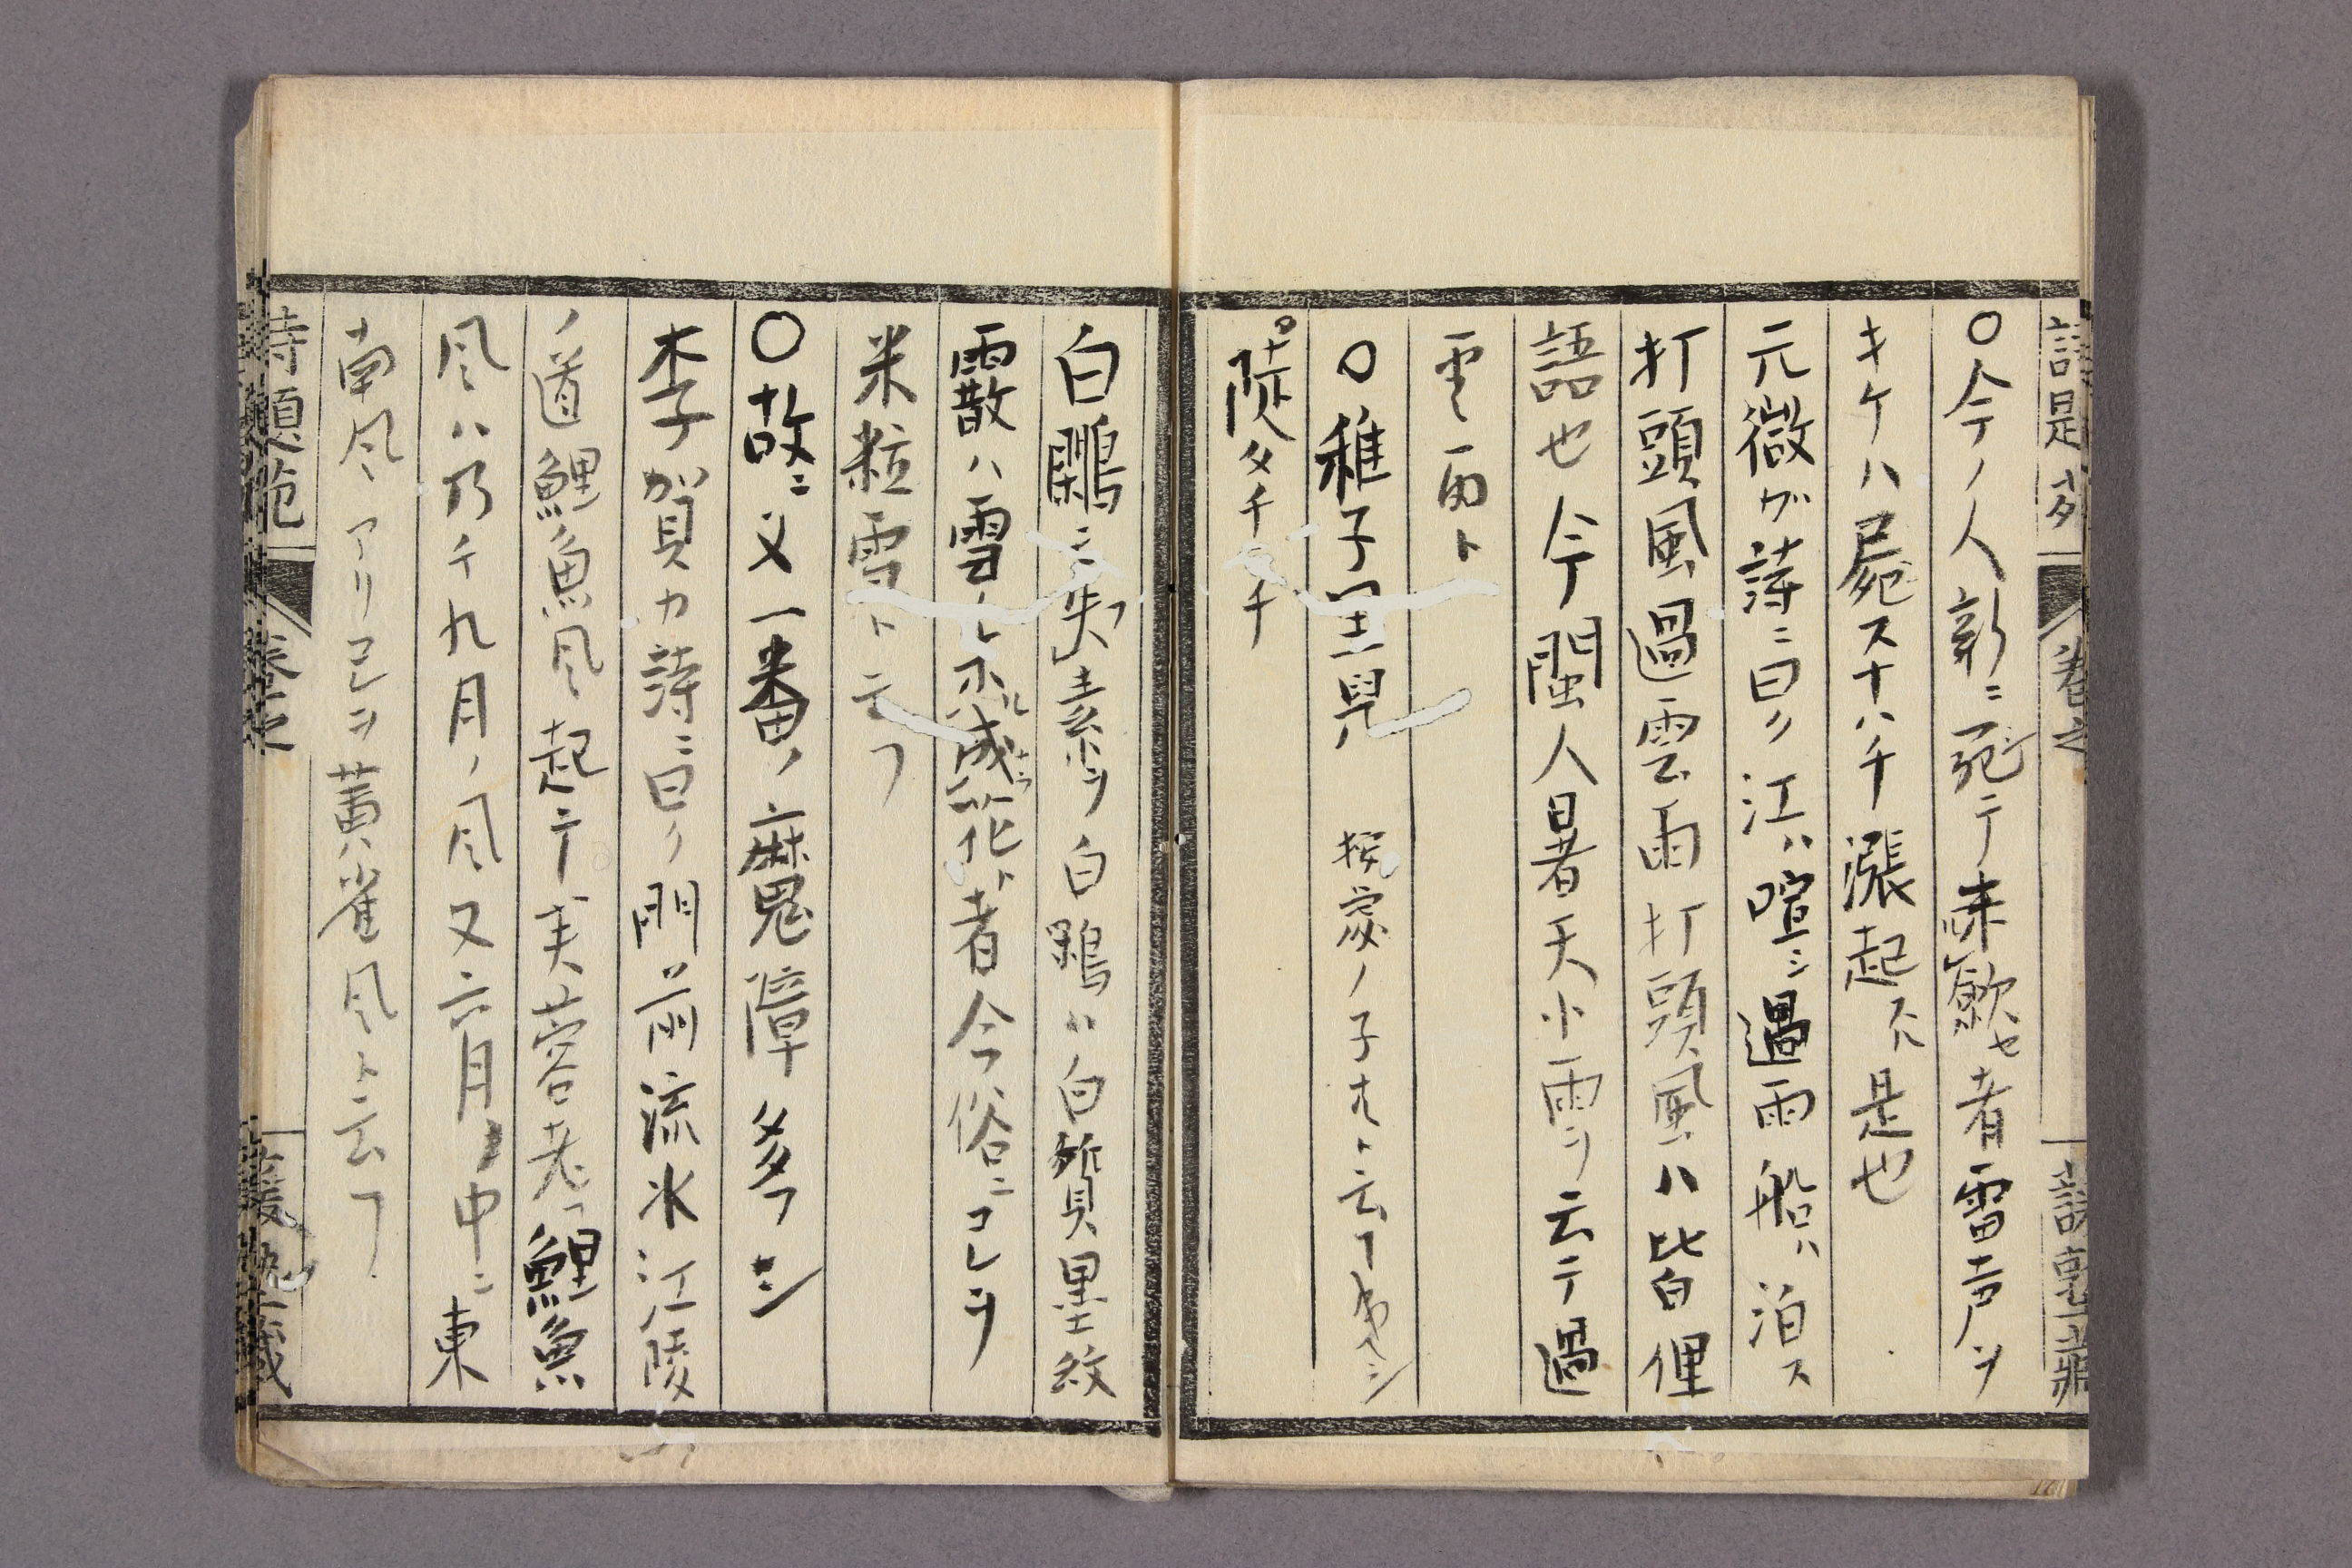 ○今ノ人新ニ死テ未歛セ者雷声ヲ
キケハ屍スナハチ漲起ス是也
元微が詩ニ曰ク江ハ喧ニシ過雨船ハ泊ス
打頭風過雲雨打頭風ハ皆俚
語也今閩人暑天小雨ヲ云テ過
雲雨ト
○稚子里兒 按家ノ子
陡タチ チ
白鷴ニ失素ヲ白鷴ハ白質黒紋
霰ハ雪ト不ル成ナラ花ト者今俗ニコレヲ
米粒雪ト云フ
○故ニ又一番ノ麻鬼障多フシ
李賀カ詩ニ曰ク門前流水江陵
ノ道鯉魚風起テ芙蓉老フ鯉魚
風ハ乃チ九月ノ風又六月ノ中ニ東
南風アリコレヲ黄雀風ト云フ